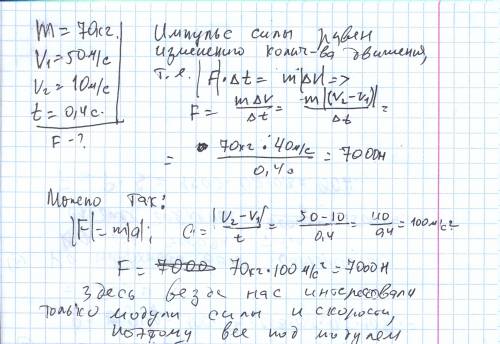 m = 70кг.
V₁ = 50м/с
V₂ = 10м/с
t = 0,4с.
F - ?
Импульс силы равен
изменению колич-ва движения,
т.е. |F|·Δt = m|ΔV| =>
F = mΔV/Δt = m|(V₂-V₁)|/Δt =
= 70кг·40м/с / 0,4с = 7000н
Можно так:
|F| = m|a|; a = |V₂-V₁|/t = 50-10/0,4 = 40/0,4 = 100м/с²
F = 70кг·100м/с² = 7000н
Здесь везде нас интересовали
только модули силы и скорости,
поэтому все под модулем